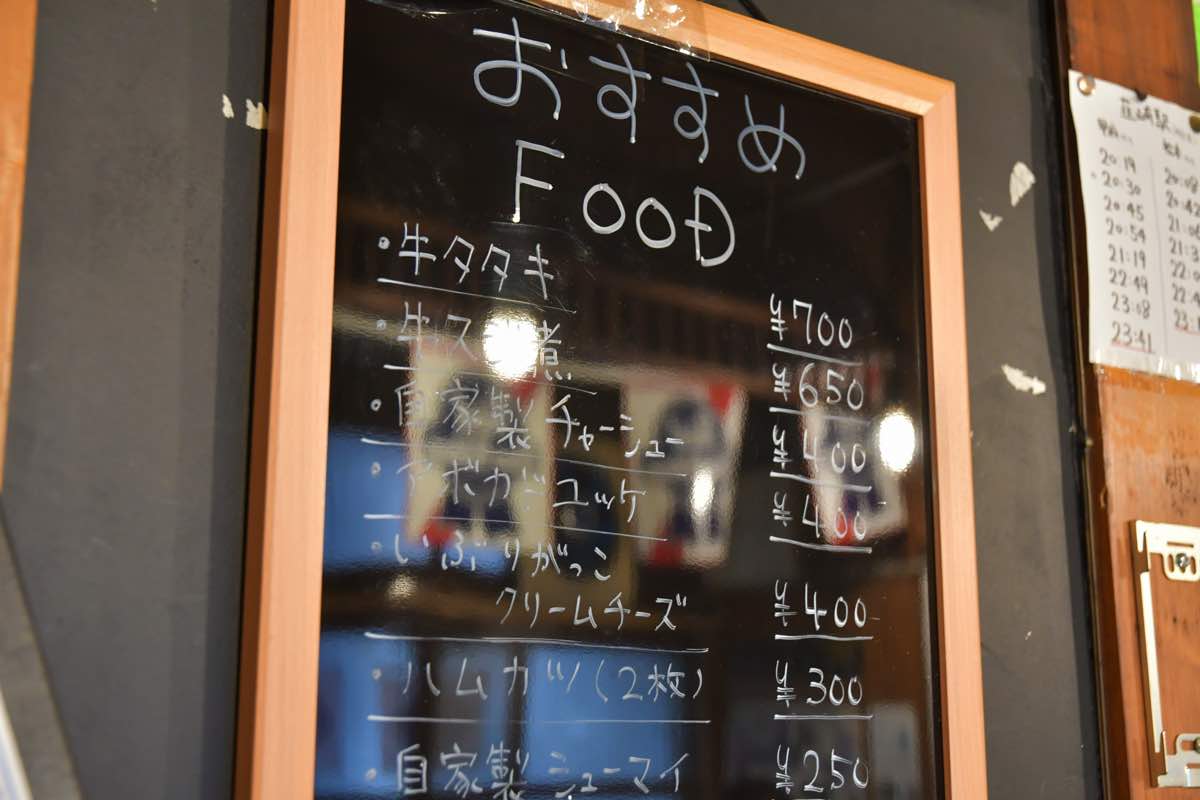 おすすめ
FOOD
・牛タタキ ¥700
・牛ス 煮 ¥650
・自家製チャーシュー ¥400
・アボカドユッケ ¥400
・いぶりがっこ
クリームチーズ ¥400
・ハムカツ(2枚) ¥300
・自家製シューマイ ¥250
韮崎駅
20:19
20:30
20:45
20:54
21:19
22:49
23:08
23:41